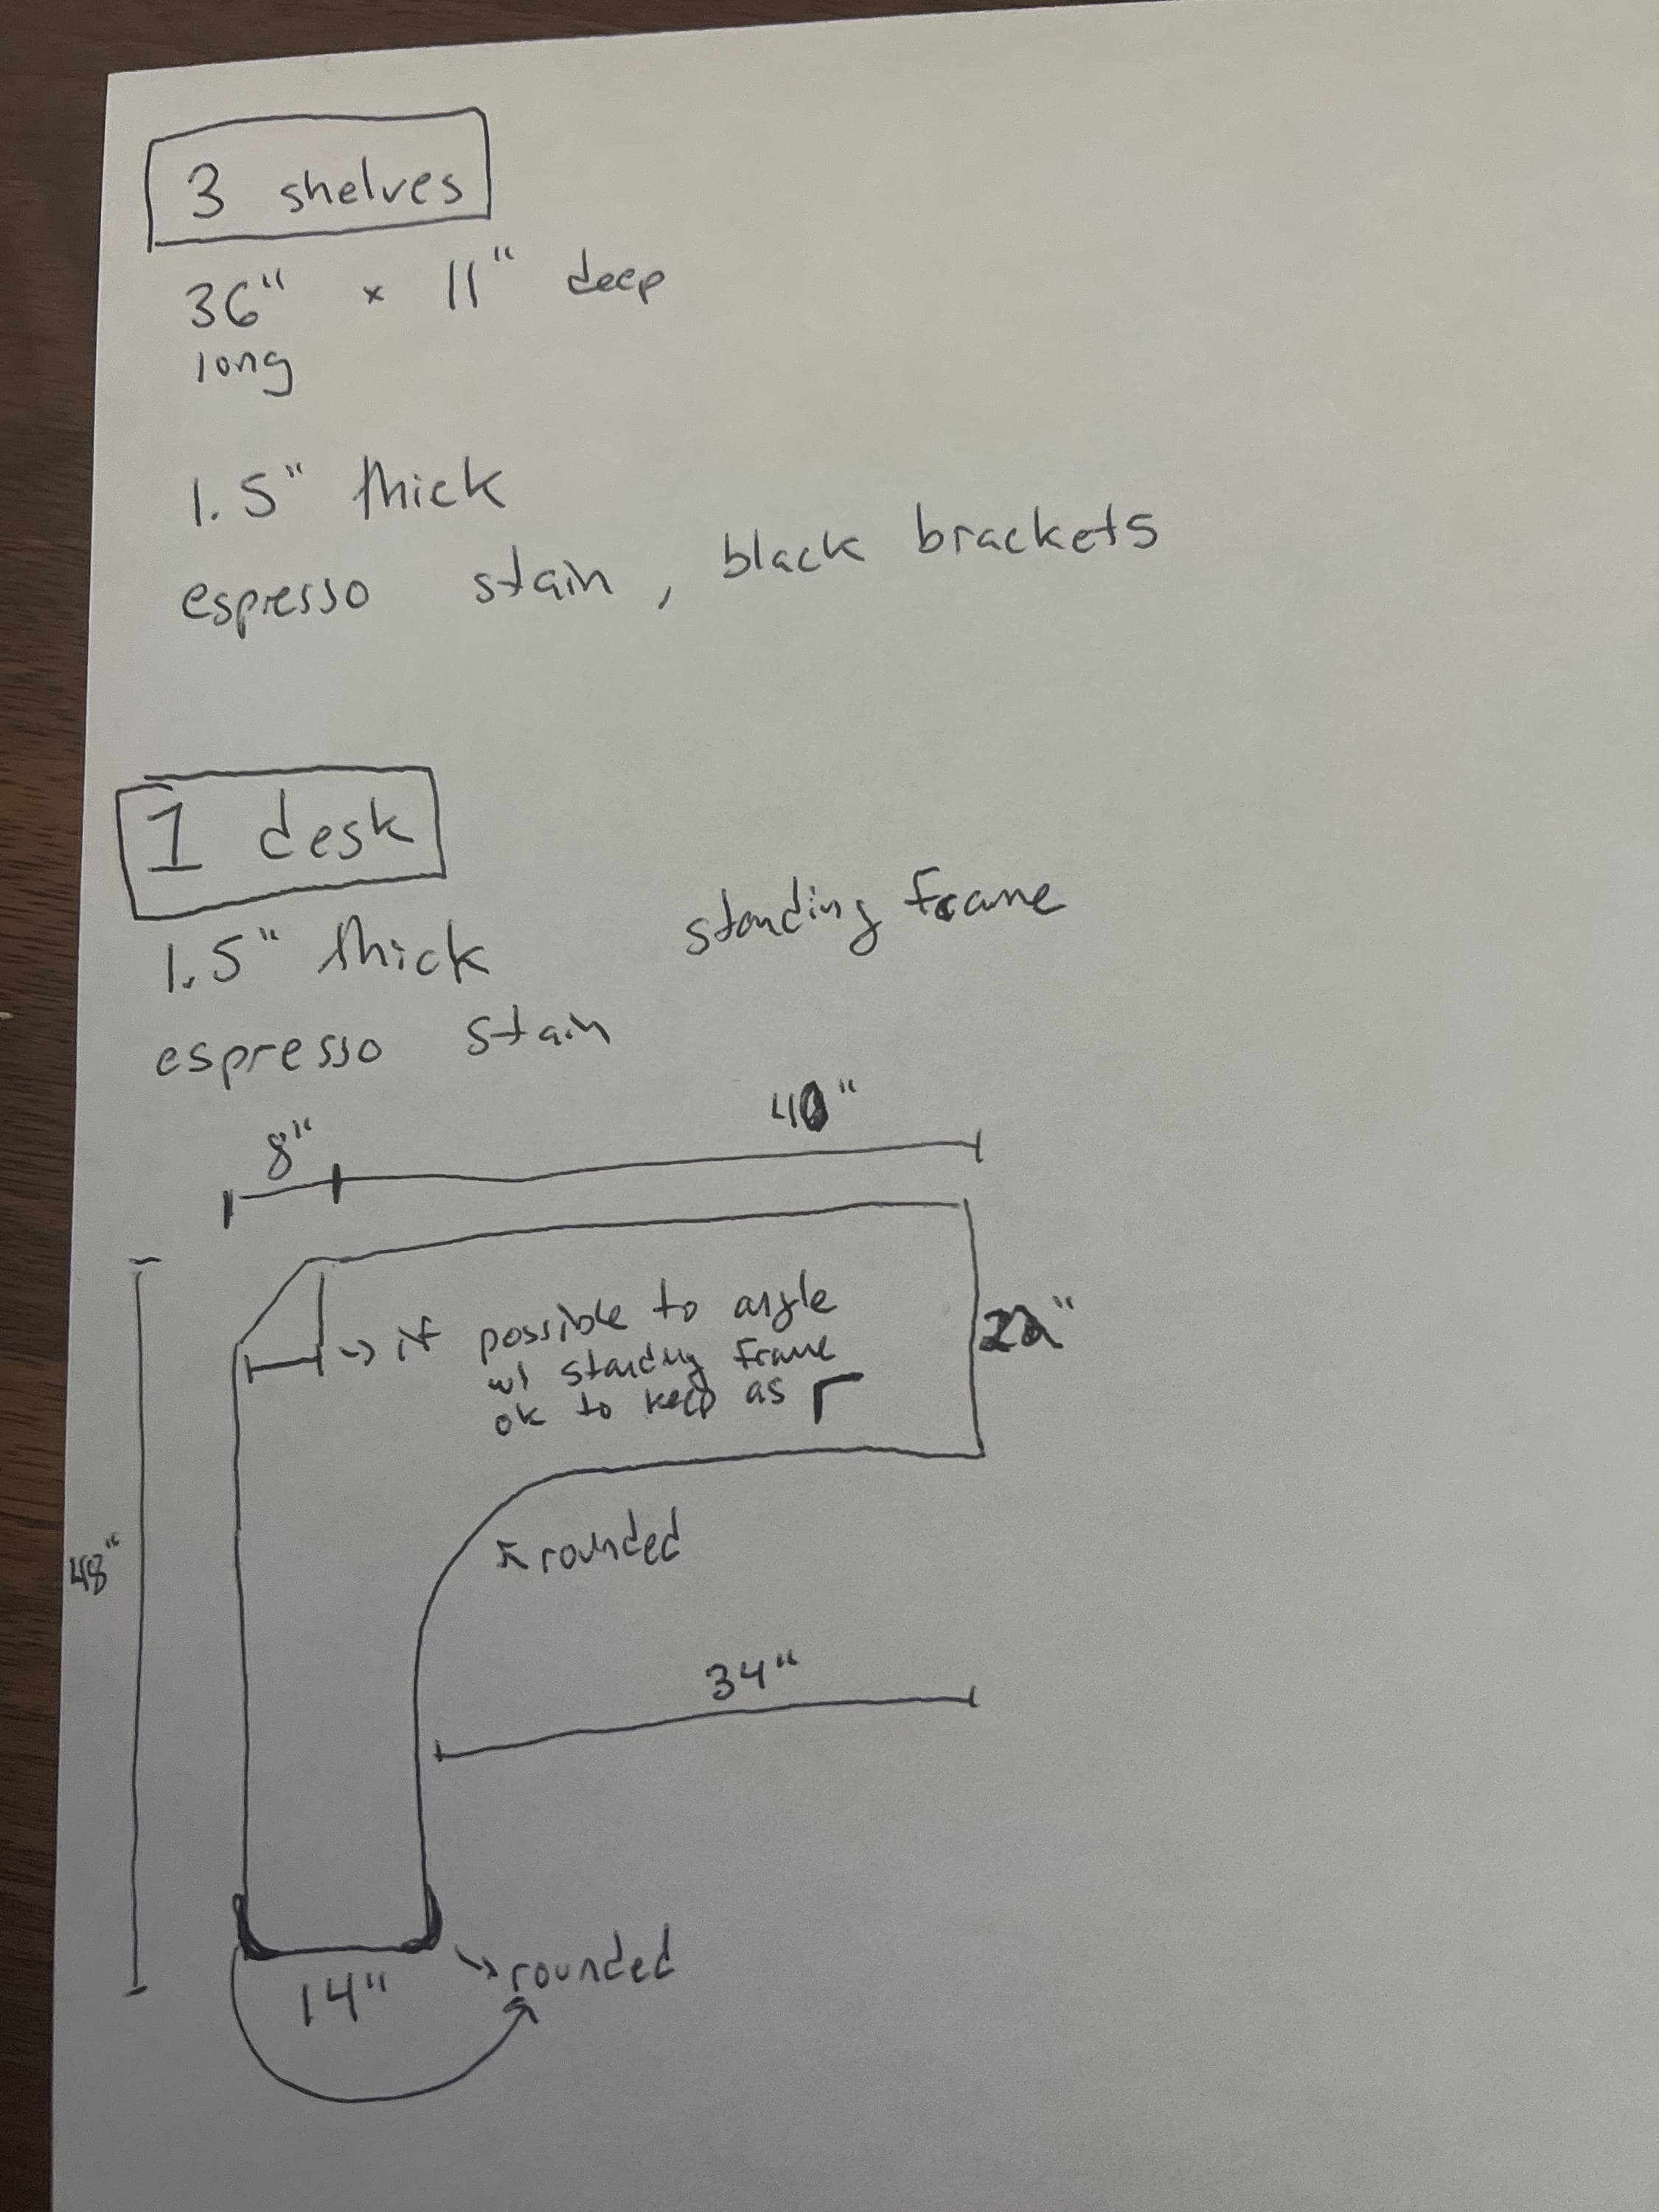 3 shelves
36" x 11" deep
long
1.5" thick
espresso stain, black brackets
1 desk
1.5" thick standing frame
espresso stain
8" 40"
if possible to angle
w/ standing frame
ok to keep as
22"
rounded
48"
34"
14"
rounded